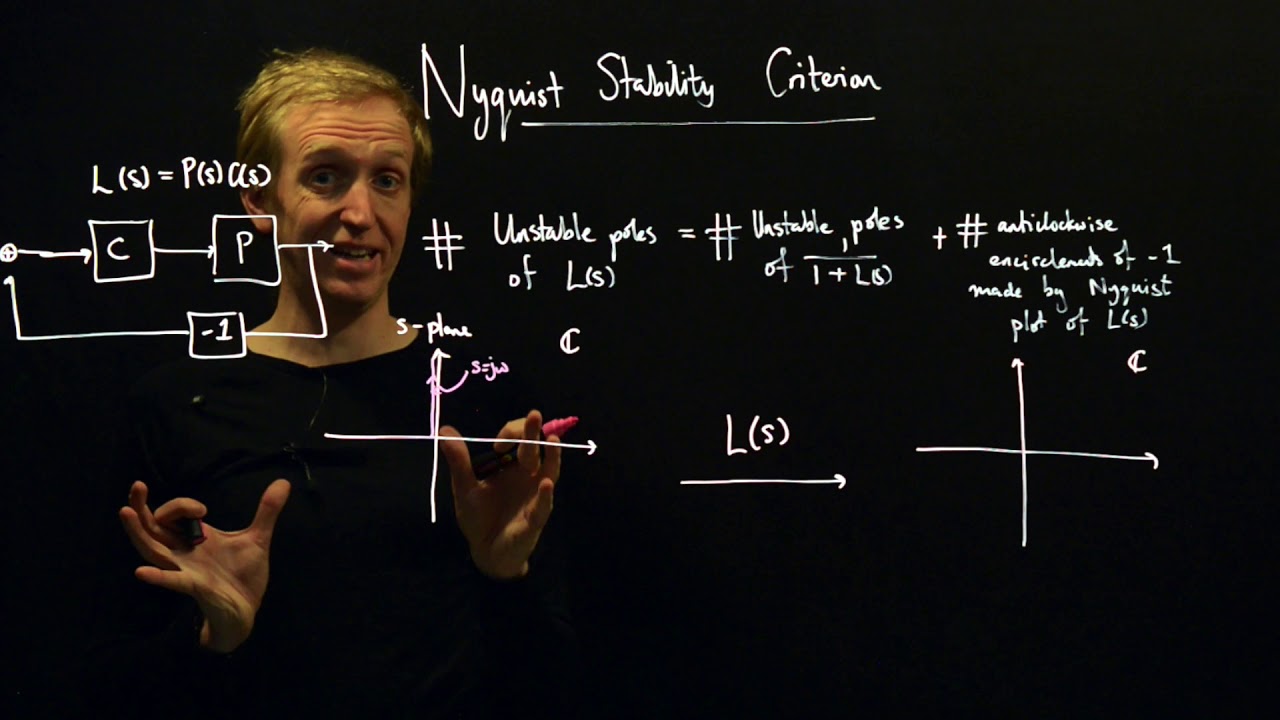 Nyquist Stability Criterion
L(s) = P(s) C(s)
C
P
-1
# Unstable poles
of L(s)
= # Unstable poles
of 1/1 + L(s)
+ # anticlockwise
encirclements of -1
made by Nyquist
plot of L(s)
s-plane
ℂ
s=jω
L(s)
ℂ